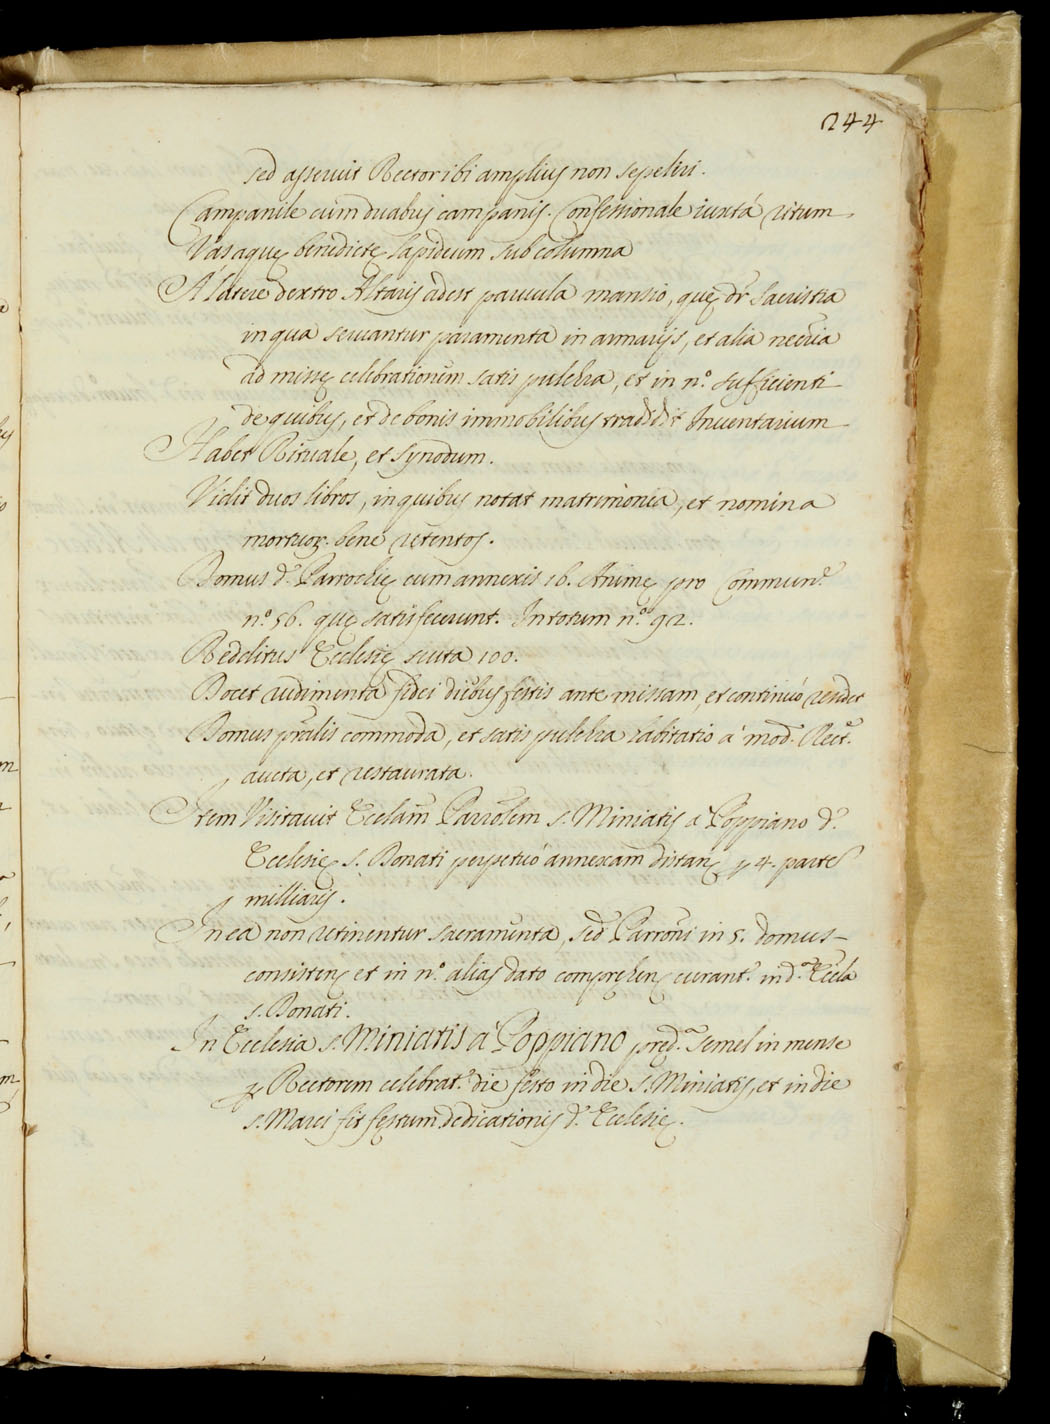 244
sed asseruit Rector ibi amplius non sepeliri.
Campanile cum duabus campanis. Confessionale iuxtá ritum.
Vas aquę benedictę lapideum sub columna
A' latere dextro Altaris adest parvula mansio, quę dr̃ Sacristia
in qua servantur paramenta in armarijs, et alia necr̃ia
ad missę celebrationem satis pulchra, et in n.º sufficienti
de quibus, et de bonis immobilibus tradidit Inventarium
Habet Rituale, et Synodum.
Vidit duos libros, in quibus notat matrimonia, et nomina
mortuoꝝ. bene retentos.
Domus d.ę Parrochię cum annexis 16. Animę pro Commun.e
n.º 56. quę satisfecerunt. In totum n.º 92.
Redditus Ecclesię scuta 100.
Docet rudimenta fidei diebus festis ante missam, et continuó residet
Domus pr̃alis commoda, et satis pulchra habitatio á mod.º Rect.e
aucta, et restaurata.
Item Visitavit Ecclam̃ Parrolem̃ s. Miniatis á Poppiano d.ę
Ecclesię s. Donati perpetuó annexam distanę ꝑ 4. parte
milliaris.
In ea non retinentur sacramenta, sed Parroñi in 5. domus
consistenę et in n.º alias dato comprehenę curant.r in d.ª Eccla
s. Donati.
In Ecclesia s. Miniatis á Poppiano pred.ª Semel in mense
ꝑ Rectorem celebrat.r die festo in die s. Miniatis, et in die
s. Marci fit festum dedicationis d.ę Ecclesię.